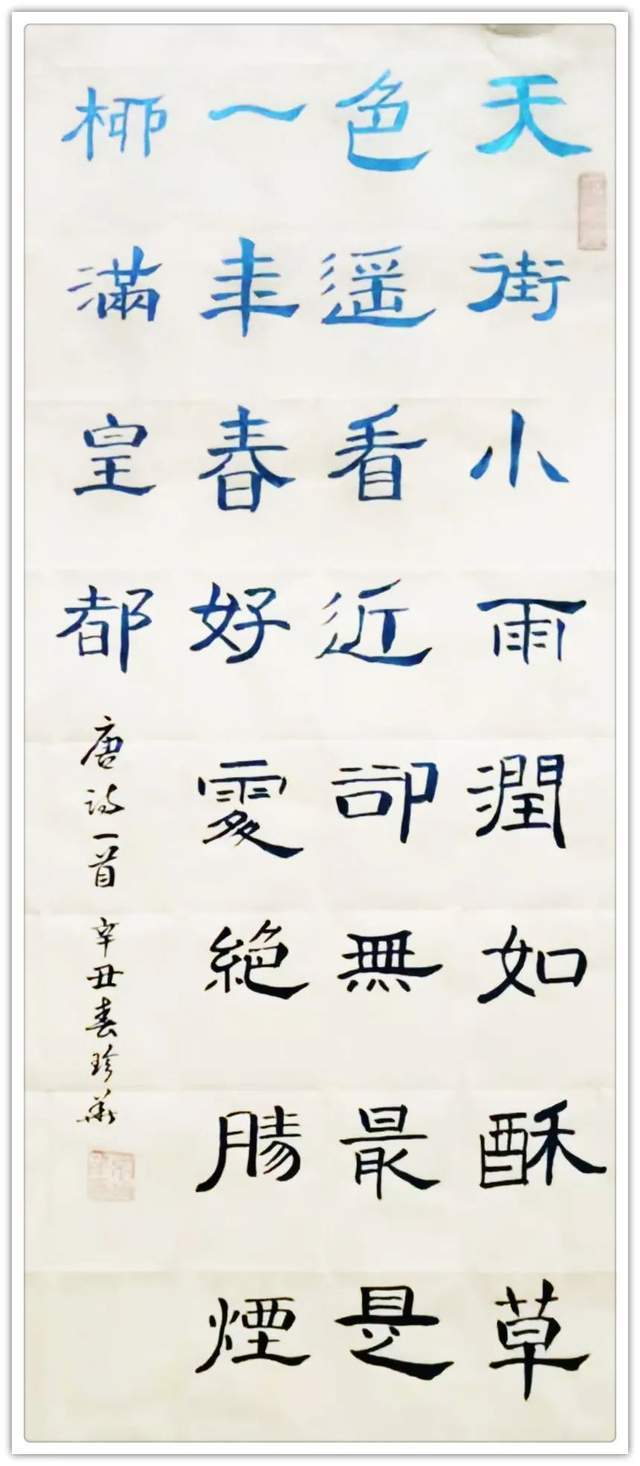 天街小雨潤如酥草
色遥看近卻無最是
一年春好處絶勝煙
柳滿皇都
唐诗一首 辛丑春珍華